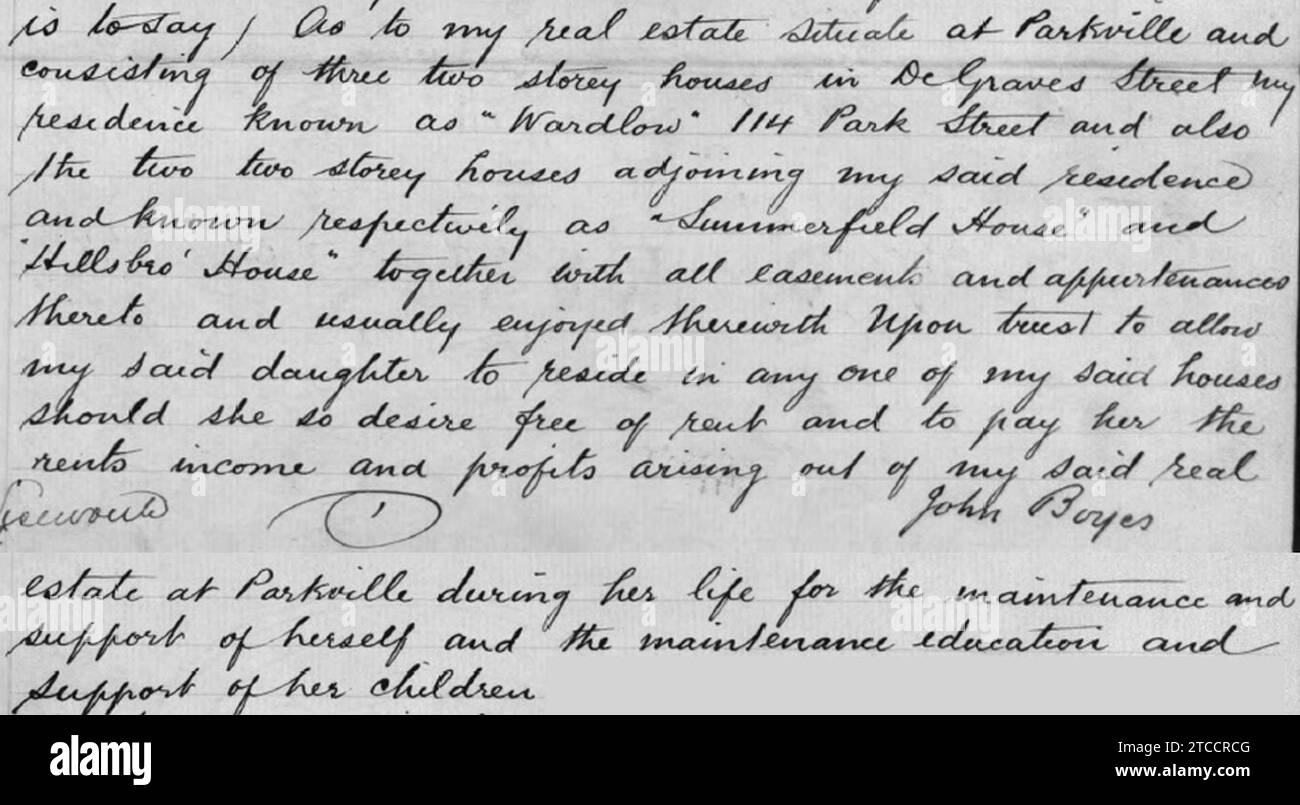 is to say) As to my real estate situate at Parkville and
consisting of three two storey houses in De Graves Street my
residence known as "Wardlow" 114 Park Street and also
the two two storey houses adjoining my said residence
and known respectively as "Summerfield House" and
"Hillsbro' House" together with all easements and appurtenances
thereto and usually enjoyed therewith Upon trust to allow
my said daughter to reside in any one of my said houses
should she so desire free of rent and to pay her the
rents income and profits arising out of my said real
John Boyes
estate at Parkville during her life for the maintenance and
support of herself and the maintenance education and
support of her children
alamy
Image ID: 2TCCRCG
www.alamy.com